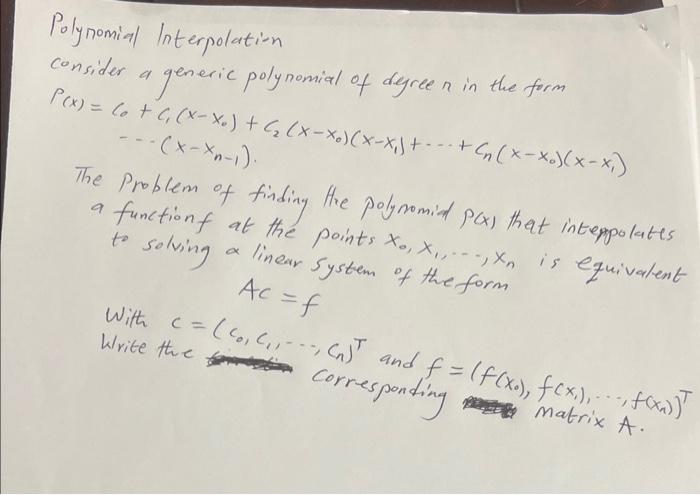 Polynomial Interpolation
consider a generic polynomial of degree n in the form
P(x) = c₀ + c₁(x-x₀) + c₂(x-x₀)(x-x₁) + --- + cₙ(x-x₀)(x-x₁)
---(x-xₙ₋₁).
The problem of finding the polynomial p(x) that inteppolates
a function f at the points x₀, x₁, ---, xₙ is equivalent
to solving a linear system of the form
Ac = f
With c = (c₀, c₁, ---, cₙ)ᵀ and f = (f(x₀), f(x₁), ---, f(xₙ))ᵀ
Write the corresponding matrix A.